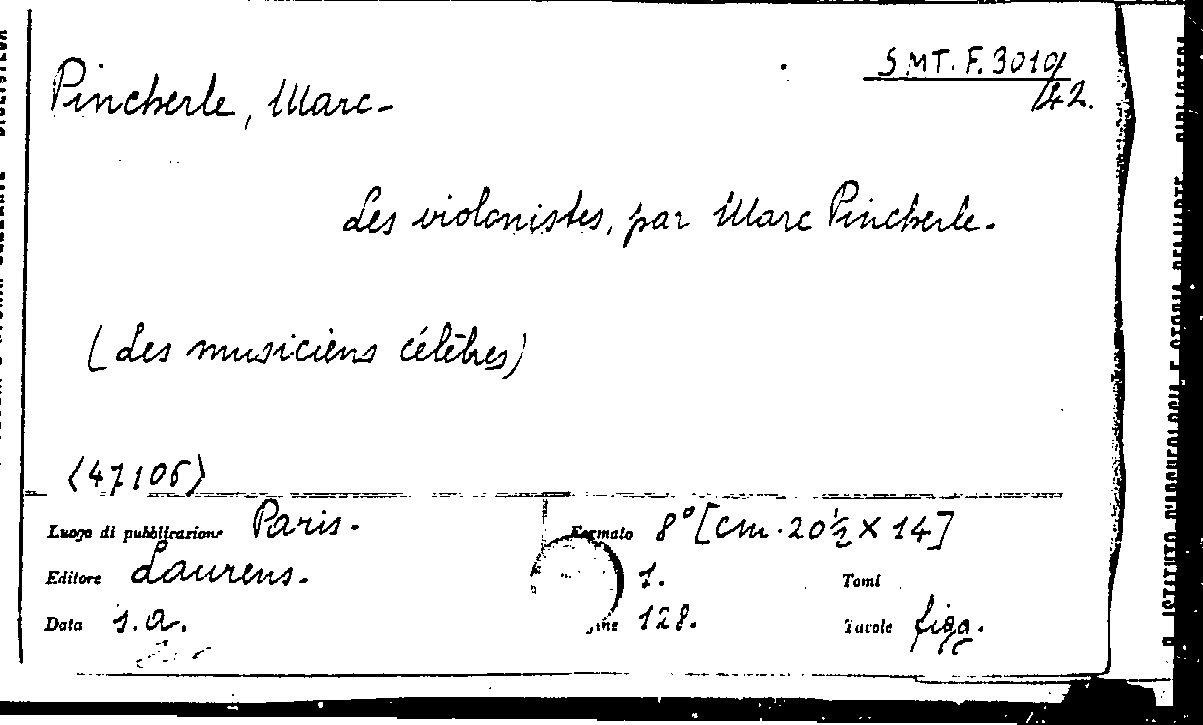 S.MT. F. 3010/
/42.
Pincherle, Marc-
Les violonistes, par Marc Pincherle.
(Les musiciens célèbres)
(47106)
Luogo di pubblicazione Paris. Formato 8° [cm. 20½ X 14]
Editore Laurens. 1. Tomi
Data s.a. 128. Tavole figg.